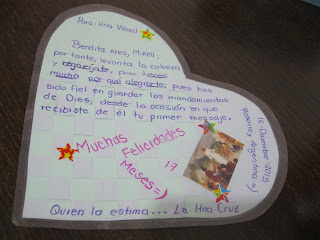 Para: Hna Wood
Bendita eres, Mikell;
por tanto, levanta la cabeza
y regocíjate, pues tienes
mucho por qué alegrarte, pues has
sido fiel en guardar los mandamientos
de Dios, desde la ocasión en que
recibiste de él tu primer mensaje.
Muchas
Felicidades
17
Meses =)
16 Diciembre 2015
Argentina =)
Quien la estima... La Hna Cruz